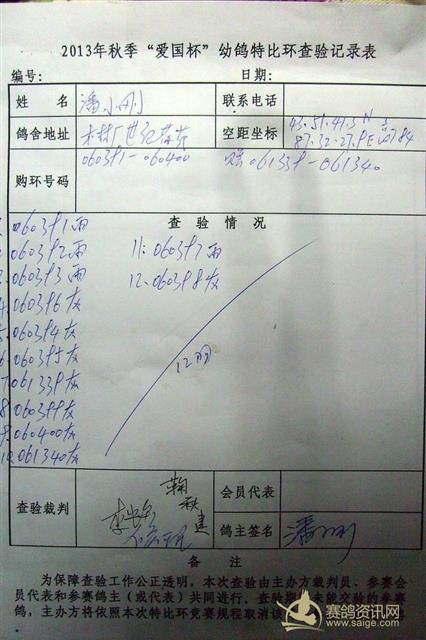 2013年秋季“爱国杯”幼鸽特比环查验记录表
编号: 日期:
姓 名 潘小刚 联系电话
鸽舍地址 木材厂世纪 空距坐标 43.51.41.3 N
87.32.27.
购环号码 060391-060400 061339-061340
查 验 情 况
1.060391雨 11.060397雨
2.060392雨 12.060398灰
3.060393雨
4.060396灰
5.060394灰
6.060395灰
7.061339灰
8.060399灰
9.060400灰
10.061340灰
12羽
查验裁判 会员代表
鸽主签名 潘小刚
备 注
为保障查验工作公正透明,本次查验由主办方裁判员、参赛会
员代表和参赛鸽主(或代表)共同进行。查验期 未能交验的参赛
鸽,主办方将依照本次特比环竞赛规程取消该
赛鸽资讯网
www.saige.com